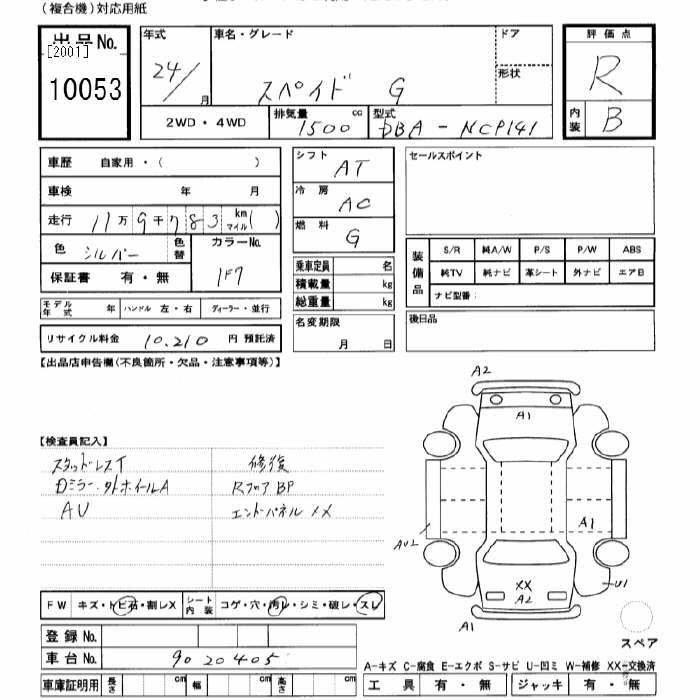 (複合機)対応用紙
出品No.
[2001]
10053
年式
24/
月
車名・グレード
スペイド G
ドア
形状
2WD・4WD
排気量
1500
cc
型式
DBA-NCP141
評価点
R
内装
B
車歴 自家用・( )
車検 年 月
走行 11万9千783 km マイル( )
色 シルバー 色替
カラーNo.
1F7
保証書 有・無
モデル年式 年 ハンドル 左・右 ディーラー・並行
リサイクル料金 10,210 円 預託済
シフト AT
冷房 AC
燃料 G
乗車定員 名
積載量 kg
総重量 kg
名変期限
月 日
セールスポイント
装備品
S/R 純A/W P/S P/W ABS
純TV 純ナビ 革シート 外ナビ エアB
ナビ型番:
後日品
【出品店申告欄(不良箇所・欠品・注意事項等)】
【検査員記入】
スタッドレスT 修復
Dミラー,外ホイールA RフロアBP
AU エンドパネル XX
A2
A1
A1
AU2
XX
A2
U1
A1
スペア
FW キズ・トビ石・割レX シート内装 コゲ・穴・汚レ・シミ・破レ・スレ
登録No.
車台No. 9020405
車庫証明用 長さ cm 幅 cm 高さ cm
A-キズ C-腐食 E-エクボ S-サビ U-凹ミ W-補修 XX-交換済
工具 有・無 ジャッキ 有・無